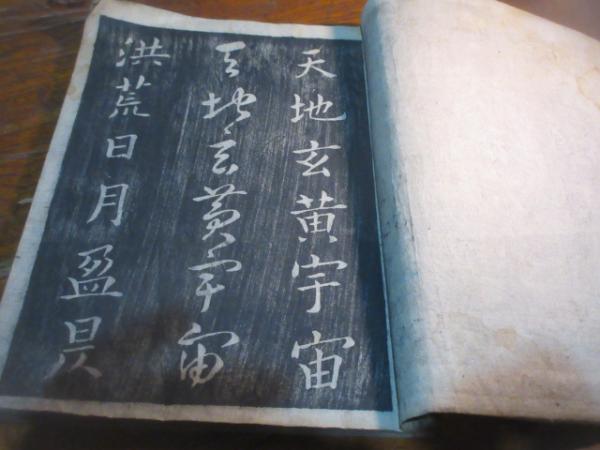 天地玄黃宇宙
天地玄黃宇宙
洪荒日月盈昃